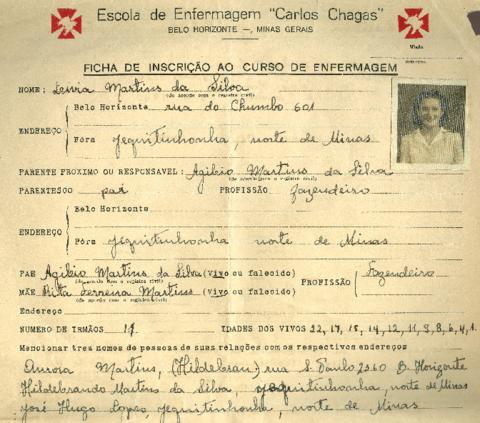 Escola de Enfermagem "Carlos Chagas"
BELO HORIZONTE —, MINAS GERAIS
FICHA DE INSCRIÇÃO AO CURSO DE ENFERMAGEM
NOME: Martins da Silva
(de acordo com o registro civil)
Belo Horizonte rua do Chumbo 601
ENDEREÇO
Fóra Jequitinhonha, norte de Minas
PARENTE PROXIMO OU RESPONSAVEL: Agilbio Martins da Silva
(de acordo com o registro civil)
PARENTESCO pai PROFISSÃO fazendeiro
Belo Horizonte
ENDEREÇO
Fóra Jequitinhonha norte de Minas
PAE Agilbio Martins da Silva (vivo ou falecido) PROFISSÃO Fazendeiro
(de acordo com o registro civil)
MÃE Rita Ferreira Martins (vivo ou falecido)
(de acordo com o registro civil)
Endereço
NUMERO DE IRMÃOS 11 IDADES DOS VIVOS 22, 17, 15, 14, 12, 11, 8, 8, 6, 4, 1.
Mencionar tres nomes de pessoas de suas relações com os respectivos endereços
Aurora Martins, (Hildebran) rua S. Paulo 2360 B. Horizonte
Hildebrando Martins da Silva, Jequitinhonha, norte de Minas
José Hugo Lopes, Jequitinhonha, norte de Minas